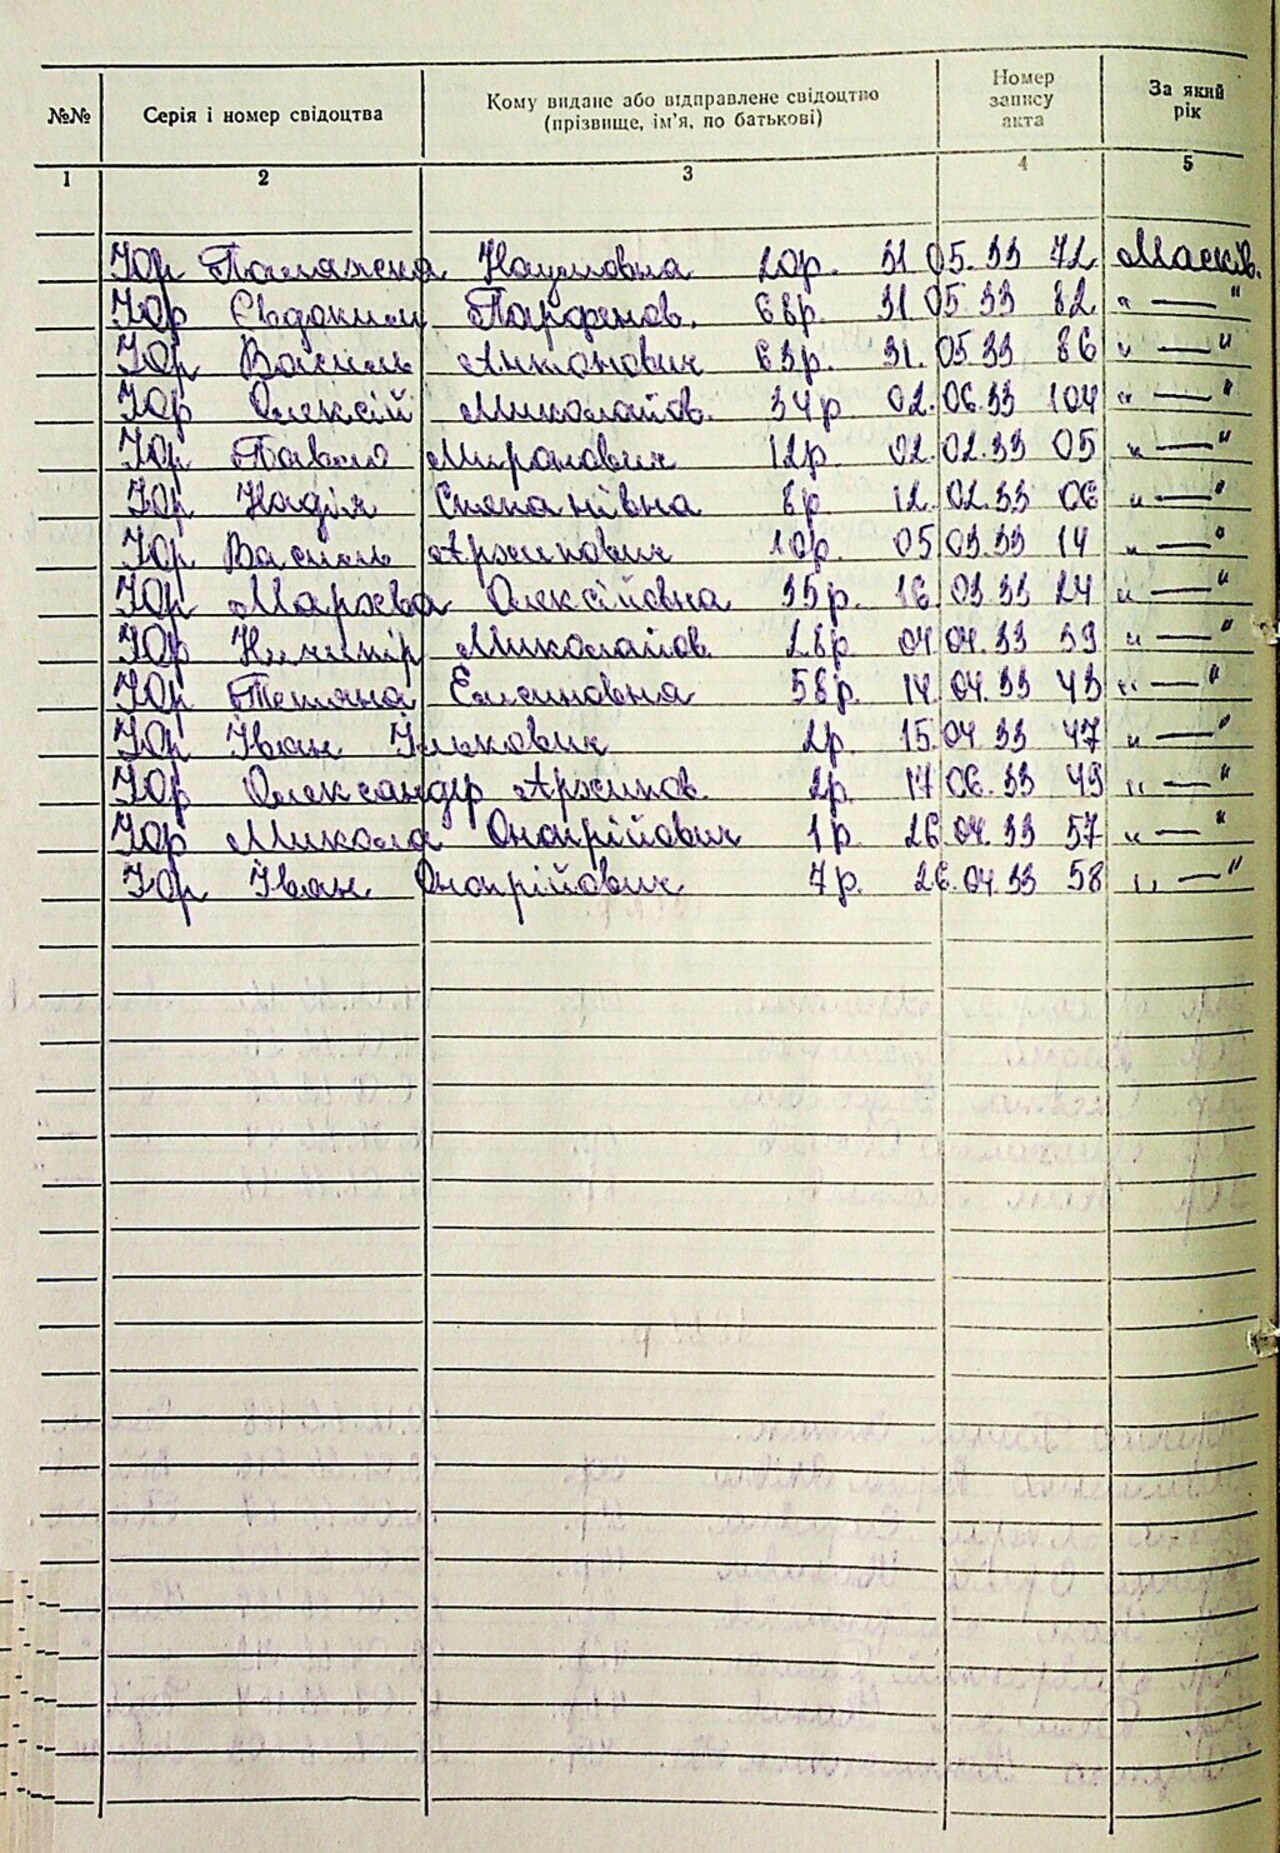 №№ Серія і номер свідоцтва Кому видане або відправлене свідоцтво (прізвище, ім'я, по батькові) Номер запису акта За який рік
1 2 3 4 5
Юр Палажка Наумовна 20р. 31 05.33 72 Масків.
Юр Євдоким Парфенов. 68р. 31.05.33 82 " — "
Юр Василь Антонович 63р. 31.05.33 86 " — "
Юр Олексій Миколайов. 34р. 02.06.33 104 " — "
Юр Павло Миронович 12р. 02.02.33 05 " — "
Юр Надія Степанівна 8р. 12.02.33 06 " — "
Юр Василь Архипович 10р. 05 03.33 14 " — "
Юр Марфва Олексійовна 35р. 16.03.33 24 " — "
Юр Ничипір Миколайов. 28р. 04 04.33 39 " — "
Юр Тетяна Елисиновна 58р. 14.04.33 43 " — "
Юр Іван Ількович 2р. 15.04.33 47 " — "
Юр Олександер Архипов. 2р. 17 06.33 49 " — "
Юр Микола Онопрійович 1р. 26.04.33 57 " — "
Юр Іван Онопрійович 7р. 26.04.33 58 " — "